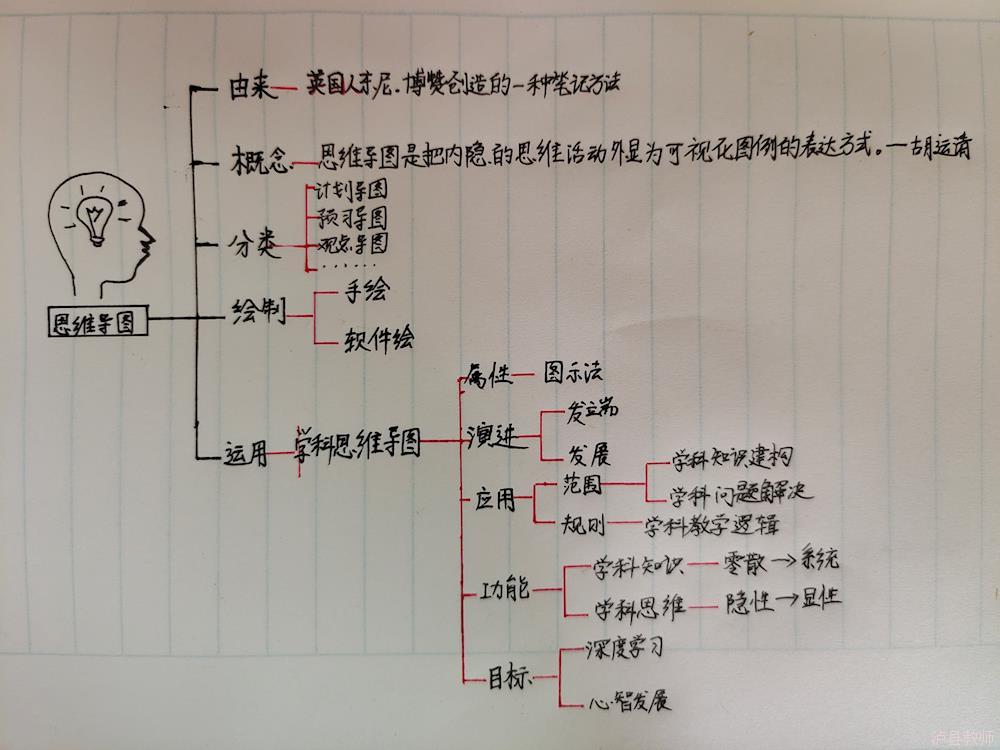 由来
英国人东尼.博赞创造的一种笔记方法
概念
思维导图是把内隐的思维活动外显为可视化图例的表达方式。—胡运清
分类
计划导图
预习导图
观点导图
......
思维导图
绘制
手绘
软件绘
运用
学科思维导图
属性
图示法
演进
发端
发展
应用
范围
学科知识建构
学科问题解决
规则
学科教学逻辑
功能
学科知识
零散→系统
学科思维
隐性→显性
目标
深度学习
心智发展
泸县教师